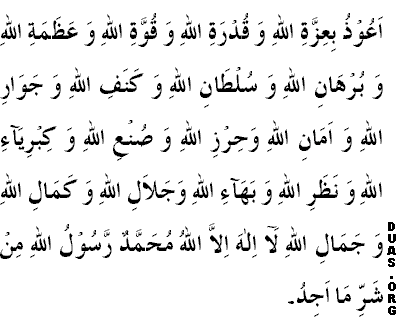 اَعُوْذُ بِعِزَّةِ اللهِ وَ قُدْرَةِ اللهِ وَ قُوَّةِ اللهِ وَ عَظَمَةِ اللهِ
وَ بُرْهَانِ اللهِ وَ سُلْطَانِ اللهِ وَ كَنَفِ اللهِ وَ جَوَارِ
اللهِ وَ اَمَانِ اللهِ وَحِرْزِ اللهِ وَ صُنْعِ اللهِ وَ كِبْرِيَآءِ
اللهِ وَ نَظَرِ اللهِ وَ بَهَآءِ اللهِ وَجَلَالِ اللهِ وَ كَمَالِ اللهِ
وَ جَمَالِ اللهِ لَآ اِلٰهَ اِلاَّ اللهُ مُحَمَّدٌ رَّسُوْلُ اللهِ مِنْ
شَرِّ مَا اَجِدُ۔
DUAS.ORG